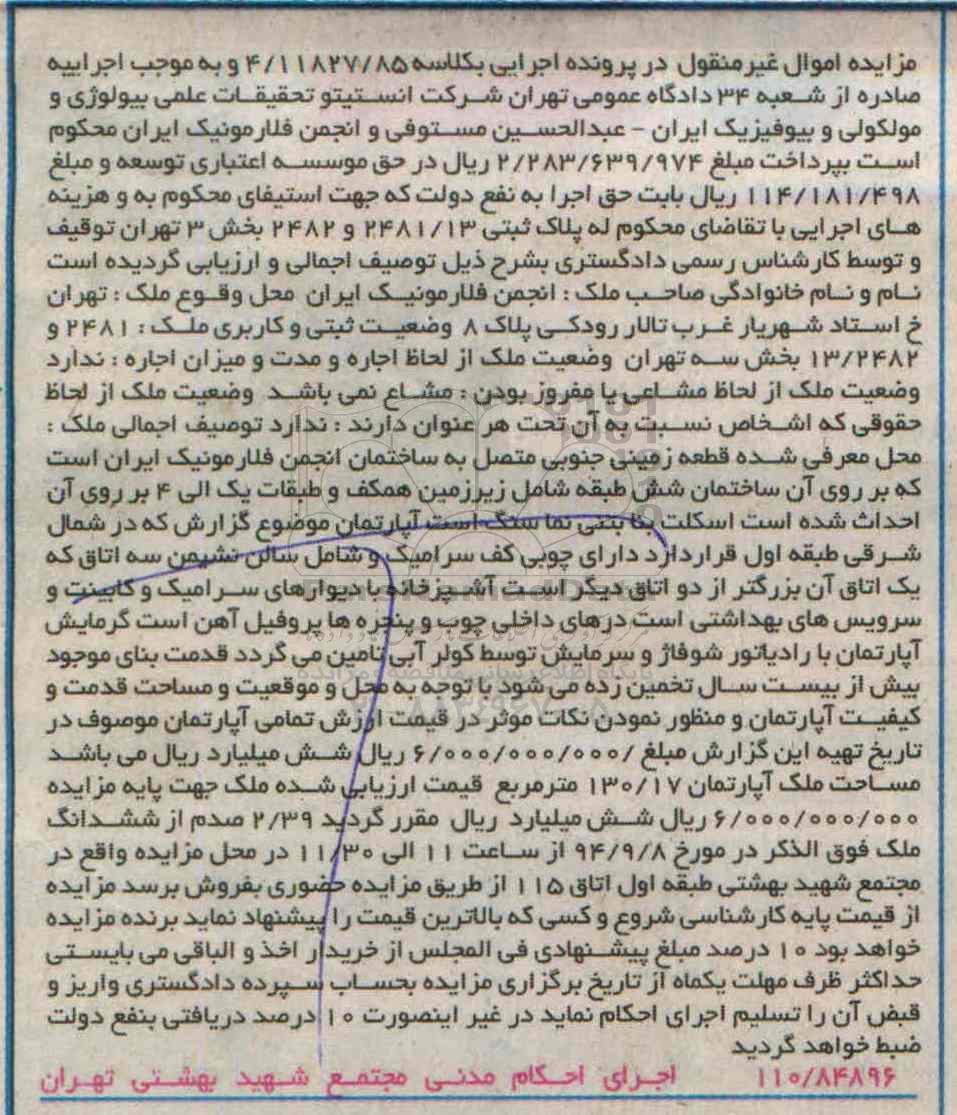 مزایده اموال غیرمنقول در پرونده اجرایی بکلاسه ۴/۱۱۸۲۷/۸۵ و به موجب اجراییه
صادره از شعبه ۳۴ دادگاه عمومی تهران شرکت انستیتو تحقیقات علمی بیولوژی و
مولکولی و بیوفیزیک ایران - عبدالحسین مستوفی و انجمن فلارمونیک ایران محکوم
است بپرداخت مبلغ ۲/۲۸۳/۶۳۹/۹۷۴ ریال در حق موسسه اعتباری توسعه و مبلغ
۱۱۴/۱۸۱/۴۹۸ ریال بابت حق اجرا به نفع دولت که جهت استیفای محکوم به و هزینه
های اجرایی با تقاضای محکوم له پلاک ثبتی ۲۴۸۱/۱۳ و ۲۴۸۲ بخش ۳ تهران توقیف
و توسط کارشناس رسمی دادگستری بشرح ذیل توصیف اجمالی و ارزیابی گردیده است
نام و نام خانوادگی صاحب ملک : انجمن فلارمونیک ایران محل وقوع ملک : تهران
خ استاد شهریار غرب تالار رودکی پلاک ۸ وضعیت ثبتی و کاربری ملک : ۲۴۸۱ و
۱۳/۲۴۸۲ بخش سه تهران وضعیت ملک از لحاظ اجاره و مدت و میزان اجاره : ندارد
وضعیت ملک از لحاظ مشاعی یا مفروز بودن : مشاع نمی باشد وضعیت ملک از لحاظ
حقوقی که اشخاص نسبت به آن تحت هر عنوان دارند : ندارد توصیف اجمالی ملک :
محل معرفی شده قطعه زمینی جنوبی متصل به ساختمان انجمن فلارمونیک ایران است
که بر روی آن ساختمان شش طبقه شامل زیرزمین همکف و طبقات یک الی ۴ بر روی آن
احداث شده است اسکلت بنا بتنی نما سنگ است آپارتمان موضوع گزارش که در شمال
شرقی طبقه اول قرار دارد دارای چوبی کف سرامیک و شامل سالن نشیمن سه اتاق که
یک اتاق آن بزرگتر از دو اتاق دیگر است آشپزخانه با دیوارهای سرامیک و کابینت و
سرویس های بهداشتی است درهای داخلی چوب و پنجره ها پروفیل آهن است گرمایش
آپارتمان با رادیاتور شوفاژ و سرمایش توسط کولر آبی تامین می گردد قدمت بنای موجود
بیش از بیست سال تخمین زده می شود با توجه به محل و موقعیت و مساحت قدمت و
کیفیت آپارتمان و منظور نمودن نکات موثر در قیمت ارزش تمامی آپارتمان موصوف در
تاریخ تهیه این گزارش مبلغ /۶/۰۰۰/۰۰۰/۰۰۰ ریال شش میلیارد ریال می باشد
مساحت ملک آپارتمان ۱۳۰/۱۷ مترمربع قیمت ارزیابی شده ملک جهت پایه مزایده
۶/۰۰۰/۰۰۰/۰۰۰ ریال شش میلیارد ریال مقرر گردید ۲/۳۹ صدم از ششدانگ
ملک فوق الذکر در مورخ ۹۴/۹/۸ از ساعت ۱۱ الی ۱۱/۳۰ در محل مزایده واقع در
مجتمع شهید بهشتی طبقه اول اتاق ۱۱۵ از طریق مزایده حضوری بفروش برسد مزایده
از قیمت پایه کارشناسی شروع و کسی که بالاترین قیمت را پیشنهاد نماید برنده مزایده
خواهد بود ۱۰ درصد مبلغ پیشنهادی فی المجلس از خریدار اخذ و الباقی می بایستی
حداکثر ظرف مهلت یکماه از تاریخ برگزاری مزایده بحساب سپرده دادگستری واریز و
قبض آن را تسلیم اجرای احکام نماید در غیر اینصورت ۱۰ درصد دریافتی بنفع دولت
ضبط خواهد گردید
۱۱۰/۸۴۸۹۶ اجرای احکام مدنی مجتمع شهید بهشتی تهران